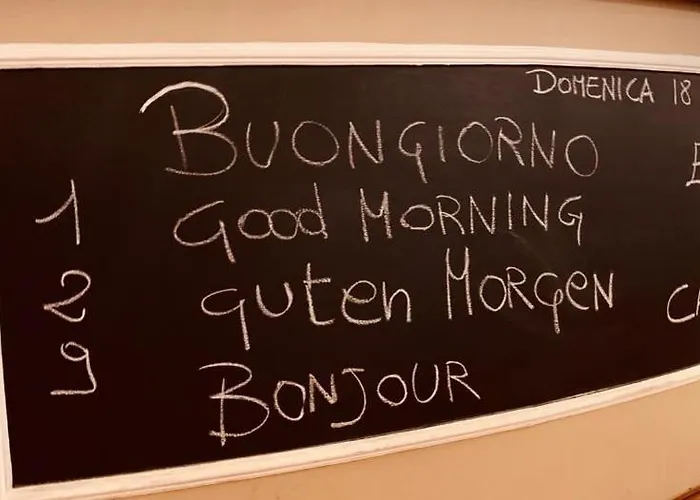 DOMENICA 18
BUONGIORNO
1 Good MORNING
2 guten MORGEN
9 BONJOUR